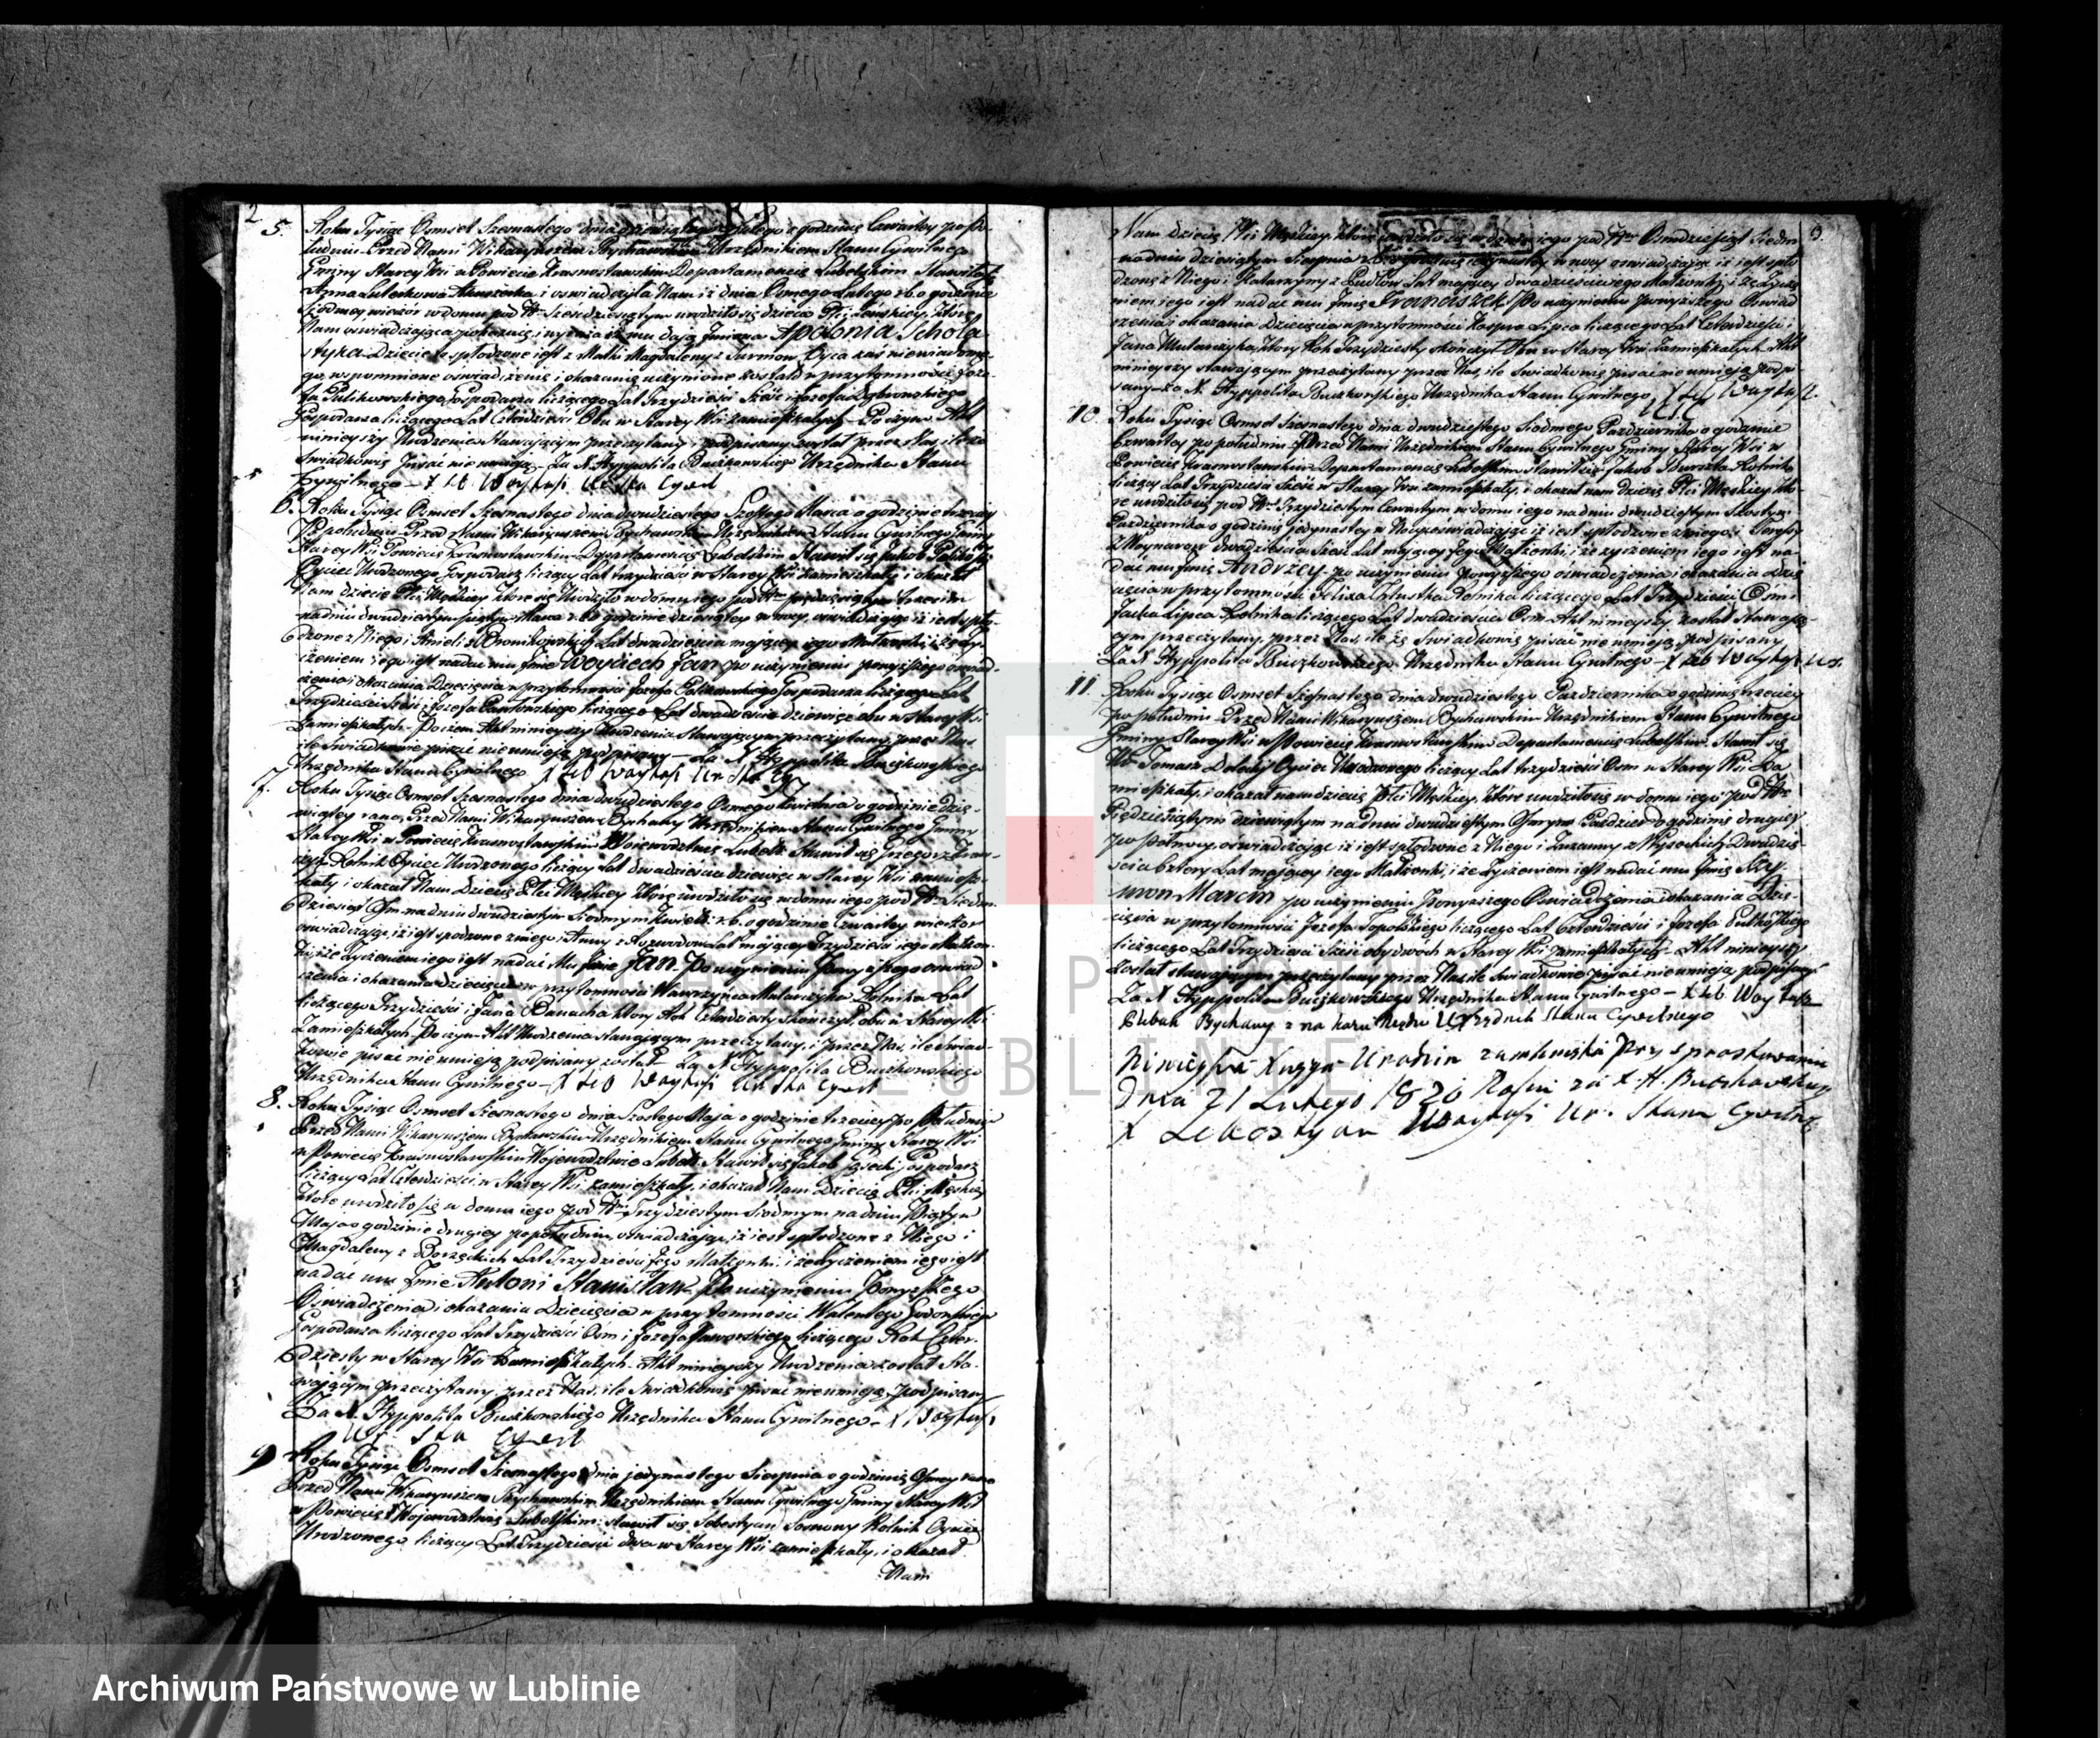 2
5. Roku Tysiąc Osmset Szesnastego dnia dziewiątego Lutego o godzinie Czwartey po Po-
łudniu Przed Nami Wikaryuszem Bychawskim Urzędnikiem Stanu Cywilnego
Gminy Starey Wsi w Powiecie Krasnostawskim Departamencie Lubelskim Stawiła się
Anna Luterkowa Akuszerka i oswiadczyła Nam iż dnia Osmego Lutego r.b. o godzinie
siodmey wieczor w domu pod Nrm Szescdziesiątym urodziło się dziecie Płci Zenskiey, które
Nam oswiadczaiąca pokazuie, i wyraza iż mu daią Imiona Apolonia Schola
styka Dziecie to spłodzone iest z Matki Magdaleny z Surmow Oyca zas niewiadome-
go, wspomnione oswiadczenie i okazanie uczynione zostało w przytomnosci Joze-
fa Pulikowskiego Gospodarza liczącego Lat Trzydziesci Szesc i Jozefa Dąbrowskiego
Gospodarza liczącego Lat Czterdziesci Obu w Starey Wsi Zamieszkałych Po czym Akt
ninieyszy Urodzenia Stawaiącym przeczytany i podpisany został przez Nas, ile ze
Swiadkowie Pisać nie umieią. Za X. Hyppolita Buczkowskiego Urzędnika Stanu
Cywilnego – X Leb Woytasi Ur Sta Cywil
6. Roku Tysiąc Osmset Szesnastego dnia dwudziestego Szostego Marca o godzinie trzeciey
Po południu Przed Nami Wikaryuszem Bychawskim Urzędnikiem Stanu Cywilnego Gminy
Starey Wsi Powiecie Krasnostawskim Departamencie Lubelskim Stawił się Jakob
Oyciec Urodzonego Gospodarz liczący Lat trzydziesci w Starey Wsi Zamieszkały i okazał
Nam dziecie Płci Męskiey które się Urodziło w domu iego pod Nrm pięcdziesiątym trzecim
na dniu dwudziestym piątym Marca r.b. o godzinie dziesiątey w nocy, oswiadczaiąc iż iest spło-
dzone z Niego i Anieli z Bronikowskich Lat dwadziescia maiącey iego Małzonki, i ze zy-
czeniem iego iest nadać mu Imie Woyciech Jan po uczynieniu powyzszego oswiad-
czenia i okazania Dziecięcia w przytomnosci Jozefa Gospodarza liczącego Lat
Trzydziesci Szesc i Jozefa Pawłowskiego liczącego Lat dwadziescia dziewięc obu w Starey Wsi
Zamieszkałych. Poczem Akt ninieyszy Urodzenia Stawaiącym przeczytany przez Nas
ile Swiadkowie pisac nie umieią podpisany – Za X. Hyppolita Buczkowskiego
Urzędnika Stanu Cywilnego X Leb Woytasi Ur Sta Cy
7. Roku Tysiąc Osmset Szesnastego dnia dwudziestego Osmego Kwietnia o godzinie dzie-
wiątey rano, Przed Nami Wikaryuszem Bychawy Urzędnikiem Stanu Cywilnego Gminy
Starey Wsi w Powiecie Krasnostawskim Woiewodztwie Lubels: Stawił się Grzegorz Fran-
czyk Rolnik Oyciec Urodzonego liczący Lat dwadziescia dziewięc w Starey Wsi zamiesz-
kały i okazał Nam Dziecie Płci Męskiey które urodziło się w domu iego pod Nr Siedm-
dziesiąt Osm na dniu dwudziestym Siodmym Kwiet: r.b. o godzinie Czwartey wieczor
oswiadczaiąc, iż iest spłodzone z niego i Anny Lat maiącey Trzydziesci iego Małzon-
ki i ze zyczeniem iego iest nadać Mu Imie Jan. Po uczynieniu Powyzszego oswiad
czenia i okazania dziecięcia w przytomnosci Wawrzynca Mularczyka Rolnika Lat
liczącego Trzydziesci i Jana Banacha ktory Rok Czterdziesty skończył, obu w Starey Wsi
Zamieszkałych. Poczym Akt Urodzenia stawaiącym przeczytany, i przez Nas, ile Swiad-
kowie pisac nie umieią podpisany został Za X Hyppolita Buczkowskiego
Urzędnika Stanu Cywilnego – X Leb Woytasi Ur Sta Cywil
8. Roku Tysiąc Osmset Szesnastego dnia Szostego Maja o godzinie trzeciey po Południu
Przed Nami Wikaryuszem Bychawskim Urzędnikiem Stanu Cywilnego Gminy Starey Wsi
w Powiecie Krasnostawskim Woiewodztwie Lubels: Stawił się Jakob Gąsecki Gospodarz
liczący Lat Czterdziesci w Starey Wsi zamieszkały, i okazał Nam Dziecie Płci Męskiey
które urodziło się w domu iego pod Nrm Trzydziestym Siodmym na dniu Piątym
Maja o godzinie drugiey po południu, oswiadczaiąc, iż iest spłodzone z Niego i
Magdaleny z Borzęckich Lat Trzydziesci Jego Małzonki, i ze zyczeniem iego iest
nadać mu Imie Antoni Stanisław. Po uczynieniu Powyzszego
Oswiadczenia i okazania Dziecięcia w przytomnosci Walentego
Gospodarza liczącego Lat Trzydziesci Osm i Jozefa Jaworskiego liczącego Rok Czter-
dziesty w Starey Wsi Zamieszkałych. Akt ninieyszy Urodzenia został Sta-
waiącym przeczytany przez Nas, ile Swiadkowie pisać nie umieią, podpisany
Za X. Hyppolita Buczkowskiego Urzędnika Stanu Cywilnego – X Woytasi
Ur. Sta Cywil
9 Roku Tysiąc Osmset Szesnastego dnia jedynastego Sierpnia o godzinie Osmey rano
Przed Nami Wikaryuszem Bychawskim Urzędnikiem Stanu Cywilnego Gminy Starey Wsi
w Powiecie Woiewodztwie Lubelskim: stawił się Sebestyan Sosnowy Rolnik Oyciec
Urodzonego liczący Lat Trzydziesci dwa w Starey Wsi zamieszkały, i okazał
Nam
3.
Nam dziecie Płci Męskiey, które urodziło się w domu iego pod Nrm Osmdziesiąt Siedm
na dniu dziesiątym Sierpnia r.b. o godzinie w nocy oswiadczaiąc iż iest spło
dzone z Niego i Katarzyny z Pudłow Lat maiącey dwadziescia iego Małzonki, i ze Zycze
niem iego iest nadać mu Imie Franciszek Po uczynieniu Powyzszego Oswiad
czenia i okazania Dziecięcia w przytomnosci Kaspra Lipca liczącego Lat Czterdziesci i
Jana Mularczyka, ktory Rok Trzydziesty skończył Obu w Starey Wsi Zamieszkałych Akt
ninieyszy stawaiącym przeczytany przez Nas, ile Swiadkowie pisac nie umieią podpi
sany – Za X. Hyppolita Buczkowskiego Urzędnika Stanu Cywilnego X Leb Woytasz.
U.S.C
10. Roku Tysiąc Osmset Szesnastego dnia dwudziestego Siodmego Pazdziernika o godzinie
Czwartey po południu Przed Nami Urzędnikiem Stanu Cywilnego Gminy Starey Wsi w
Powiecie Krasnostawskim Departamencie Lubelskim Stawił się Jakob Burszta Rolnik
liczący Lat Trzydziesci Szesc w Starey Wsi zamieszkały, i okazał nam dziecie Płci Męskiey któ-
re urodziło się pod Nrm Trzydziestym Czwartym w domu iego na dniu dwudziestym Szostym
Pazdziernika o godzinie jedynastey w Nocy oswiadczaiąc iż iest spłodzone z niego i Teressy
z Woynarow dwadziescia Szesc Lat maiącey Jego Małzonki, i ze zyczeniem iego iest na-
dać mu Imie Andrzey. po uczynieniu powyzszego oswiadczenia i okazania Dzie
cięcia w przytomnosci Felixa Rolnika liczącego Lat Trzydziesci Osm i
Jacka Lipca Rolnika liczącego Lat dwadziescia Osm. Akt ninieyszy został Stawaią-
cym przeczytany, przez Nas, ile ze Swiadkowie pisac nie umieią, podpisany
Za X Hyppolita Buczkowskiego Urzędnika Stanu Cywilnego – X Leb Woytasi Ur.
11. Roku Tysiąc Osmset Szesnastego dnia dwudziestego Pazdziernika o godzinie trzeciey
po południu – Przed Nami Wikaryuszem Bychawskim Urzędnikiem Stanu Cywilnego
Gminy Starey Wsi w Powiecie Krasnostawskim Departamencie Lubelskim. Stawił się
Tomasz Dolecki Oyciec Urodzonego liczący Lat trzydziesci Osm w Starey Wsi Za
mieszkały, i okazał nam dziecie Płci Męskiey, które urodziło się w domu iego pod Nr
Pięcdziesiątym dziewiątym na dniu dwudziestym Osmym Pazdzier: o godzinie drugiey
po połnocy, oswiadczaiąc iż iest spłodzone z Niego i Zuzanny z Wysockich Dwadzie-
scia Cztery Lat maiącey iego Małzonki, i ze Zyczeniem iest nadać mu Imie Szy
mon Marcin po uczynieniu Powyzszego Oswiadczenia i okazania Dzie-
cięcia w przytomnosci Jozefa Topolskiego liczącego Lat Czterdziesci i Jozefa
liczącego Lat Trzydziesci Szesc obydwoch w Starey Wsi Zamieszkałych – Akt ninieyszy
Został stawaiącym przeczytany przez Nas ile Swiadkowie Pisać nie umieią, podpisany
Za X Hyppolita Buczkowskiego Urzędnika Stanu Cywilnego – X Leb. Woytasz
Bychawy Urzędnik Stanu Cywilnego
Ninieysza Xięga Urodzin zamknięta Przy sprostowaniu
Dnia 21 Lutego 1820 Roku za X. H. Buczkowskiego
X Lebestyan Woytasi Ur. Stanu Cywilne
ARCHIWUM PAŃSTWOWE
W LUBLINIE
Archiwum Państwowe w Lublinie